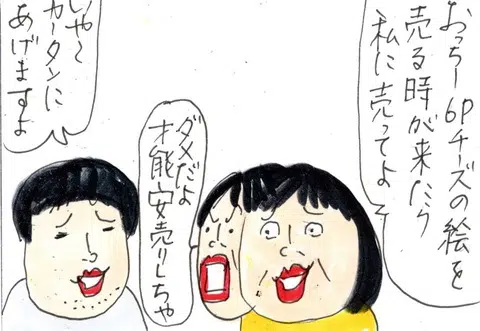 おっちー6Pチーズの絵を
売る時が来たら
私に売ってよ
ダメだよ
才能安売りしちゃ
いや〜
カータンに
あげますよ